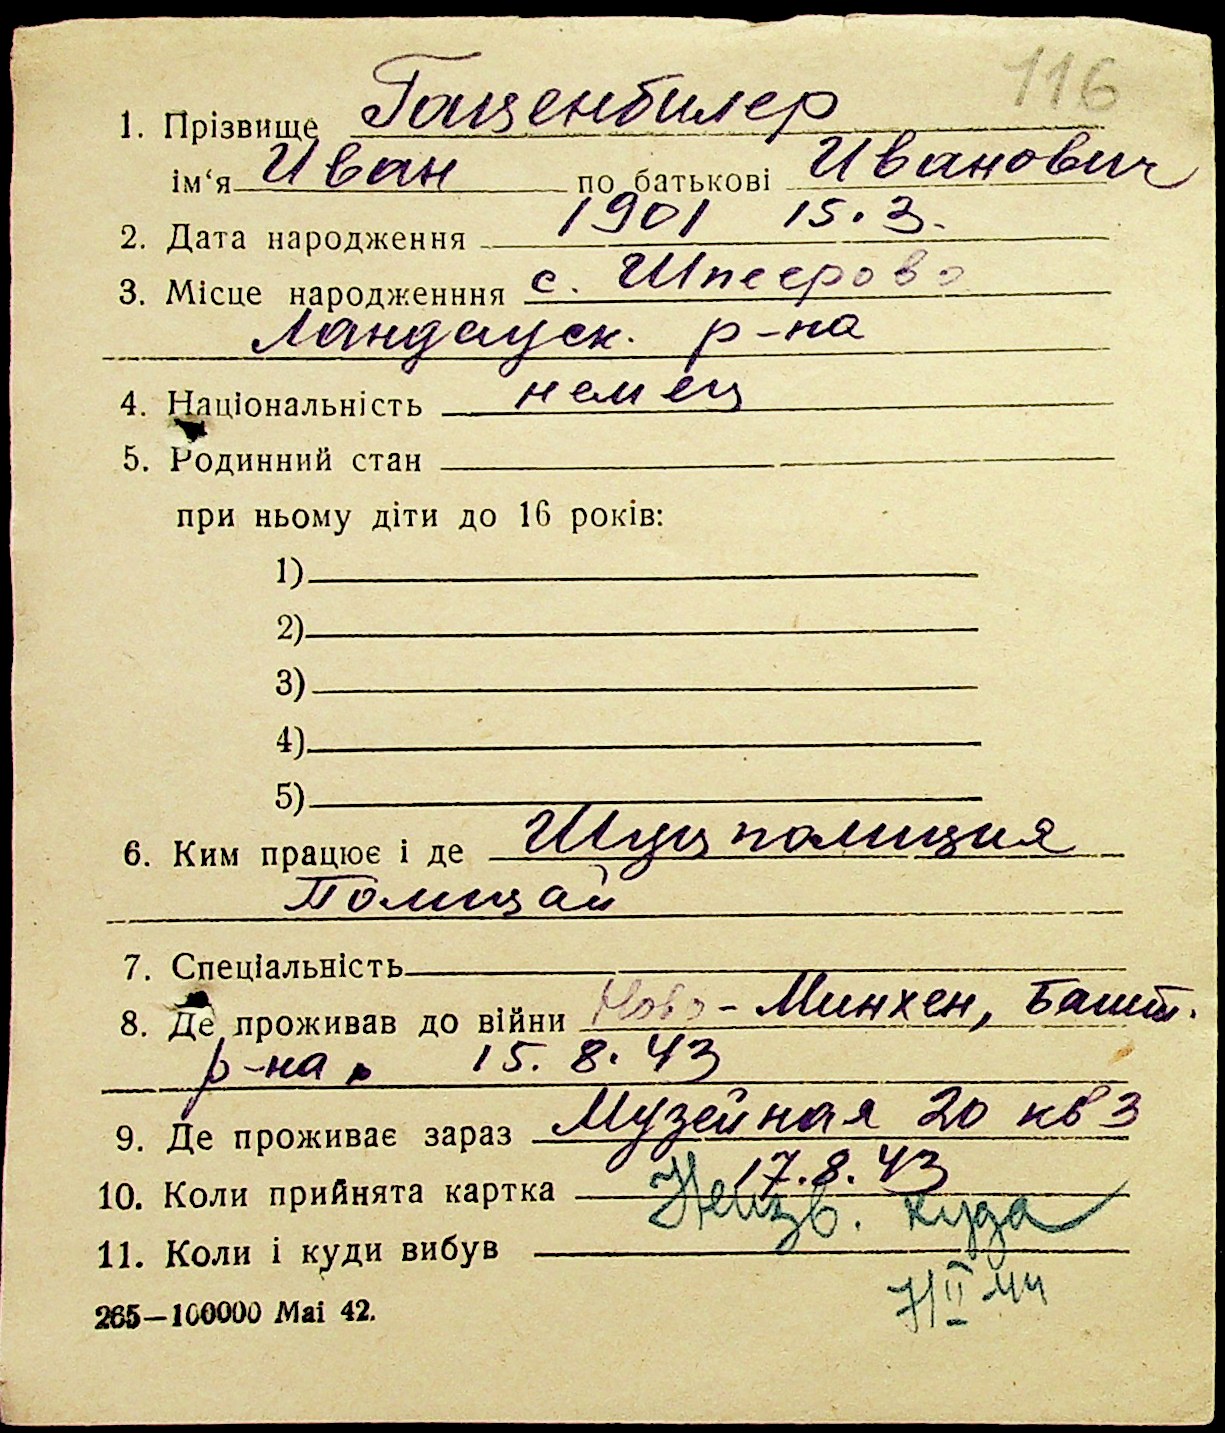 116
1. Прізвище Гаценбилер
ім‘я Иван по батькові Иванович
2. Дата народження 1901 15.3.
3. Місце народженння с. Шпеерово
Ландауск. р-на
4. Національність немец
5. Родинний стан
при ньому діти до 16 років:
1)
2)
3)
4)
5)
6. Ким працює і де Шуцполиция
Полицай
7. Спеціальність
8. Де проживав до війни Ново-Минхен, Башт.
р-на. 15.8.43
9. Де проживає зараз Музейная 20 кв 3
10. Коли прийнята картка 17.8.43
Неизв. куда
11. Коли і куди вибув
7/II 44
265—100000 Mai 42.